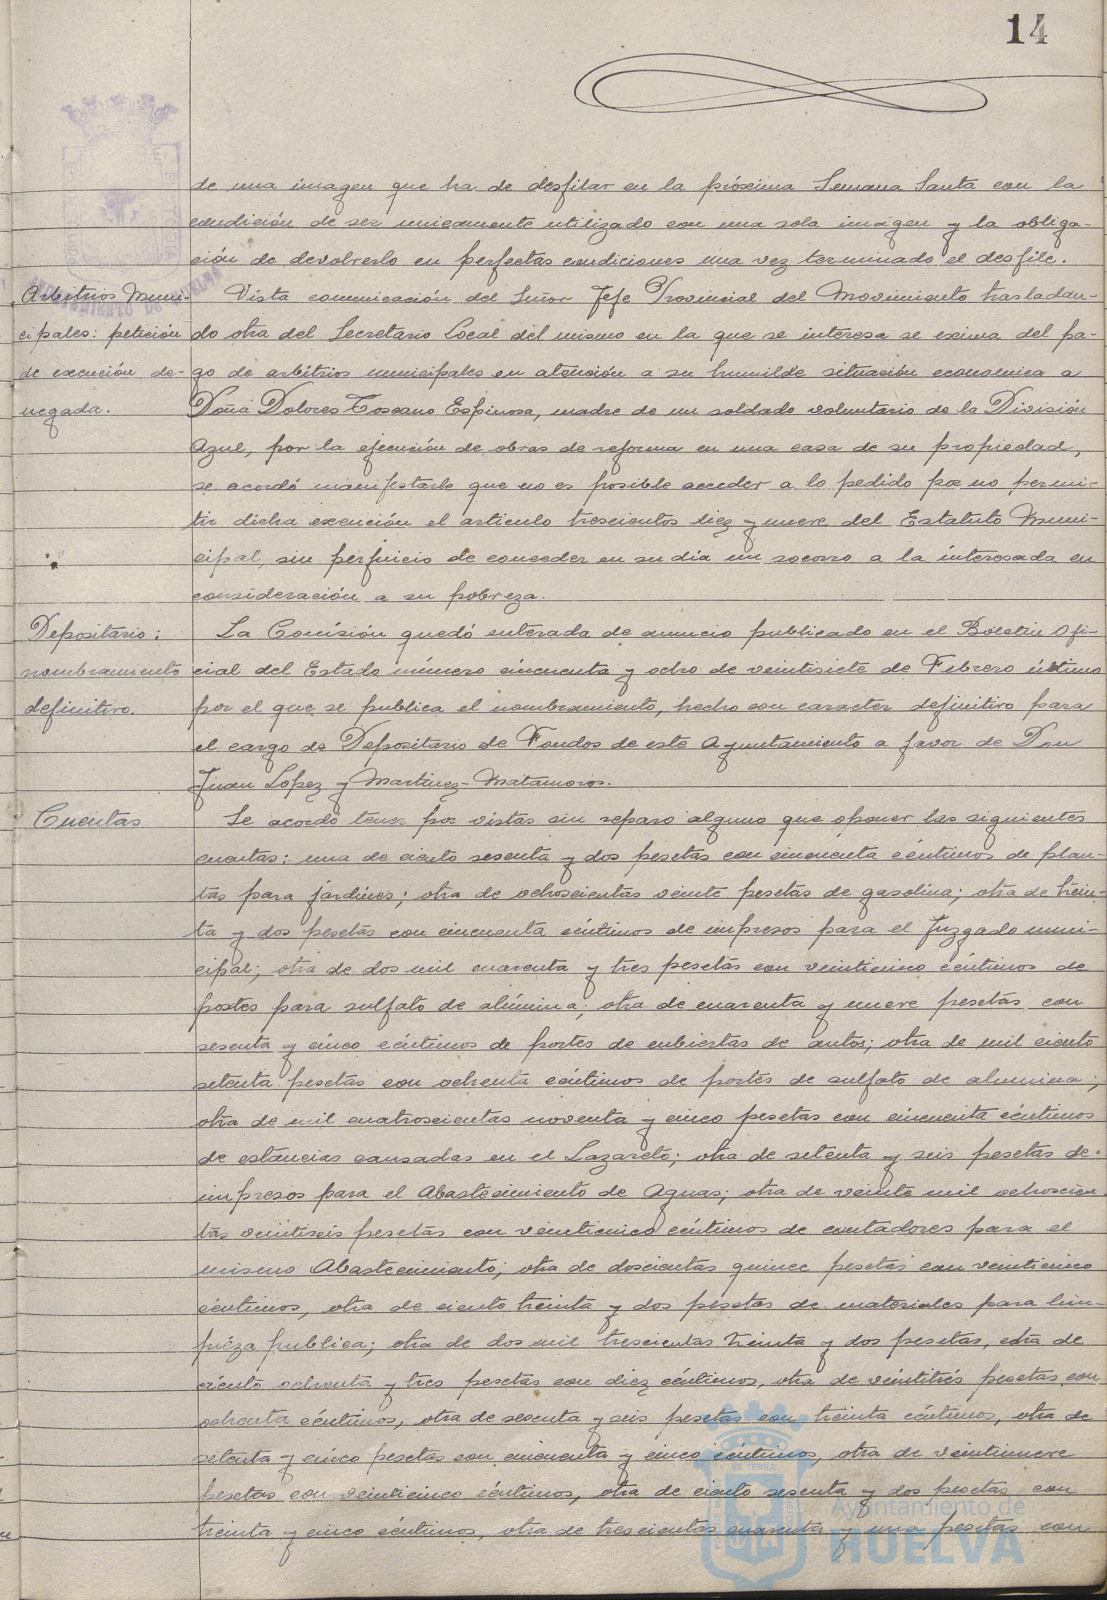 14
de una imagen que ha de desfilar en la próxima Semana Santa con la
condición de ser unicamente utilizado con una sola imagen y la obliga-
ción de devolverlo en perfectas condiciones una vez terminado el desfile.
Arbitrios Muni-
cipales: petición
de exención de-
negada.
Vista comunicación del Señor Jefe Provincial del Movimiento trasladan-
do otra del Secretario Local del mismo en la que se interesa se exima del pa-
go de arbitrios municipales en atención a su humilde situación economica a
Doña Dolores Toscano Espinosa, madre de un soldado voluntario de la División
Azul, por la ejecución de obras de reforma en una casa de su propiedad,
se acordó manifestarle que no es posible acceder a lo pedido por no permi-
tir dicha exención el articulo trescientos diez y nueve del Estatuto Muni-
cipal, sin perjuicio de conceder en su dia un socorro a la interesada en
consideración a su pobreza.
Depositario:
nombramiento
definitivo.
La Comisión quedó enterada de anuncio publicado en el Boletin Ofi-
cial del Estado número cincuenta y ocho de veintisiete de Febrero último
por el que se publica el nombramiento, hecho con caracter definitivo para
el cargo de Depositario de Fondos de este Ayuntamiento a favor de Don
Juan Lopez y Martinez-Matamoros.
Cuentas
Se acordó tener por vistas sin reparo alguno que oponer las siguientes
cuentas: una de ciento sesenta y dos pesetas con cincuenta céntimos de plan-
tas para jardines; otra de ochocientas veinte pesetas de gasolina; otra de trein-
ta y dos pesetas con cincuenta céntimos de impresos para el Juzgado muni-
cipal; otra de dos mil cuarenta y tres pesetas con veinticinco céntimos de
portes para sulfato de alúmina; otra de cuarenta y nueve pesetas con
sesenta y cinco céntimos de portes de cubiertas de autos; otra de mil ciento
setenta pesetas con ochenta céntimos de portes de sulfato de alumina;
otra de mil cuatroscientas noventa y cinco pesetas con cincuenta céntimos
de estancias causadas en el Lazareto; otra de setenta y seis pesetas de
impresos para el Abastecimiento de Aguas; otra de veinte mil ochoscien
tas veintiseis pesetas con veinticinco céntimos de contadores para el
mismo Abastecimiento; otra de doscientas quince pesetas con veinticinco
céntimos, otra de ciento treinta y dos pesetas de materiales para lim-
pieza publica; otra de dos mil trescientas treinta y dos pesetas, otra de
ciento ochenta y tres pesetas con diez céntimos, otra de veintitrés pesetas con
ochenta céntimos, otra de sesenta y seis pesetas con treinta céntimos, otra de
setenta y cinco pesetas con cincuenta y cinco céntimos, otra de veintinueve
pesetas con veinticinco céntimos, otra de ciento sesenta y dos pesetas con
treinta y cinco céntimos, otra de trescientas cuarenta y una pesetas con
Ayuntamiento de
HUELVA